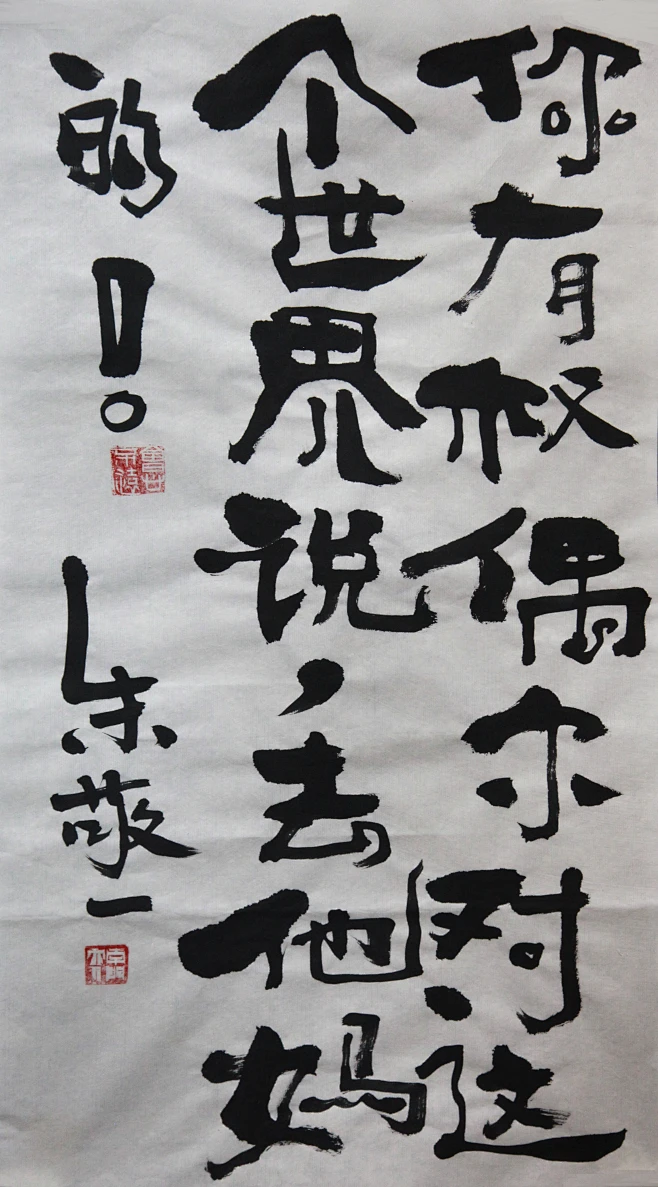 你有权偶尔对这
个世界说，去他妈
的！。
朱敬一